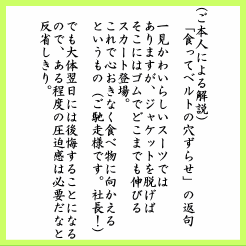 (ご本人による解説)
「食ってベルトの穴ずらせ」の返句
一見かわいらしいスーツでは
ありますが、ジャケットを脱げば
そこにはゴムでどこまでも伸びる
スカート登場。
これで心おきなく食べ物に向かえる
というもの(ご馳走様です。社長!)
でも大体翌日には後悔することになる
ので、ある程度の圧迫感は必要だなと
反省しきり。